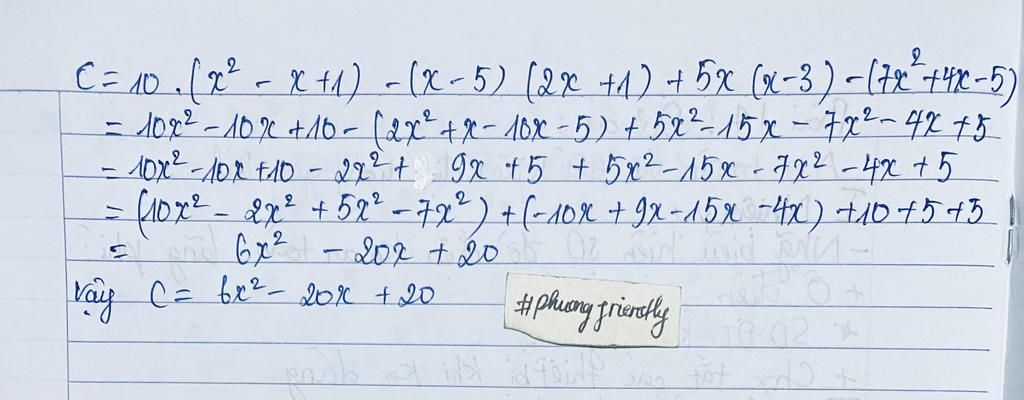 C = 10 . (x² - x + 1) - (x - 5) (2x + 1) + 5x (x - 3) - (7x² + 4x - 5)
= 10x² - 10x + 10 - (2x² + x - 10x - 5) + 5x² - 15x - 7x² - 4x + 5
= 10x² - 10x + 10 - 2x² + 9x + 5 + 5x² - 15x - 7x² - 4x + 5
= (10x² - 2x² + 5x² - 7x²) + (-10x + 9x - 15x - 4x) + 10 + 5 + 5
= 6x² - 20x + 20
Vậy C = 6x² - 20x + 20
#phuong friendly